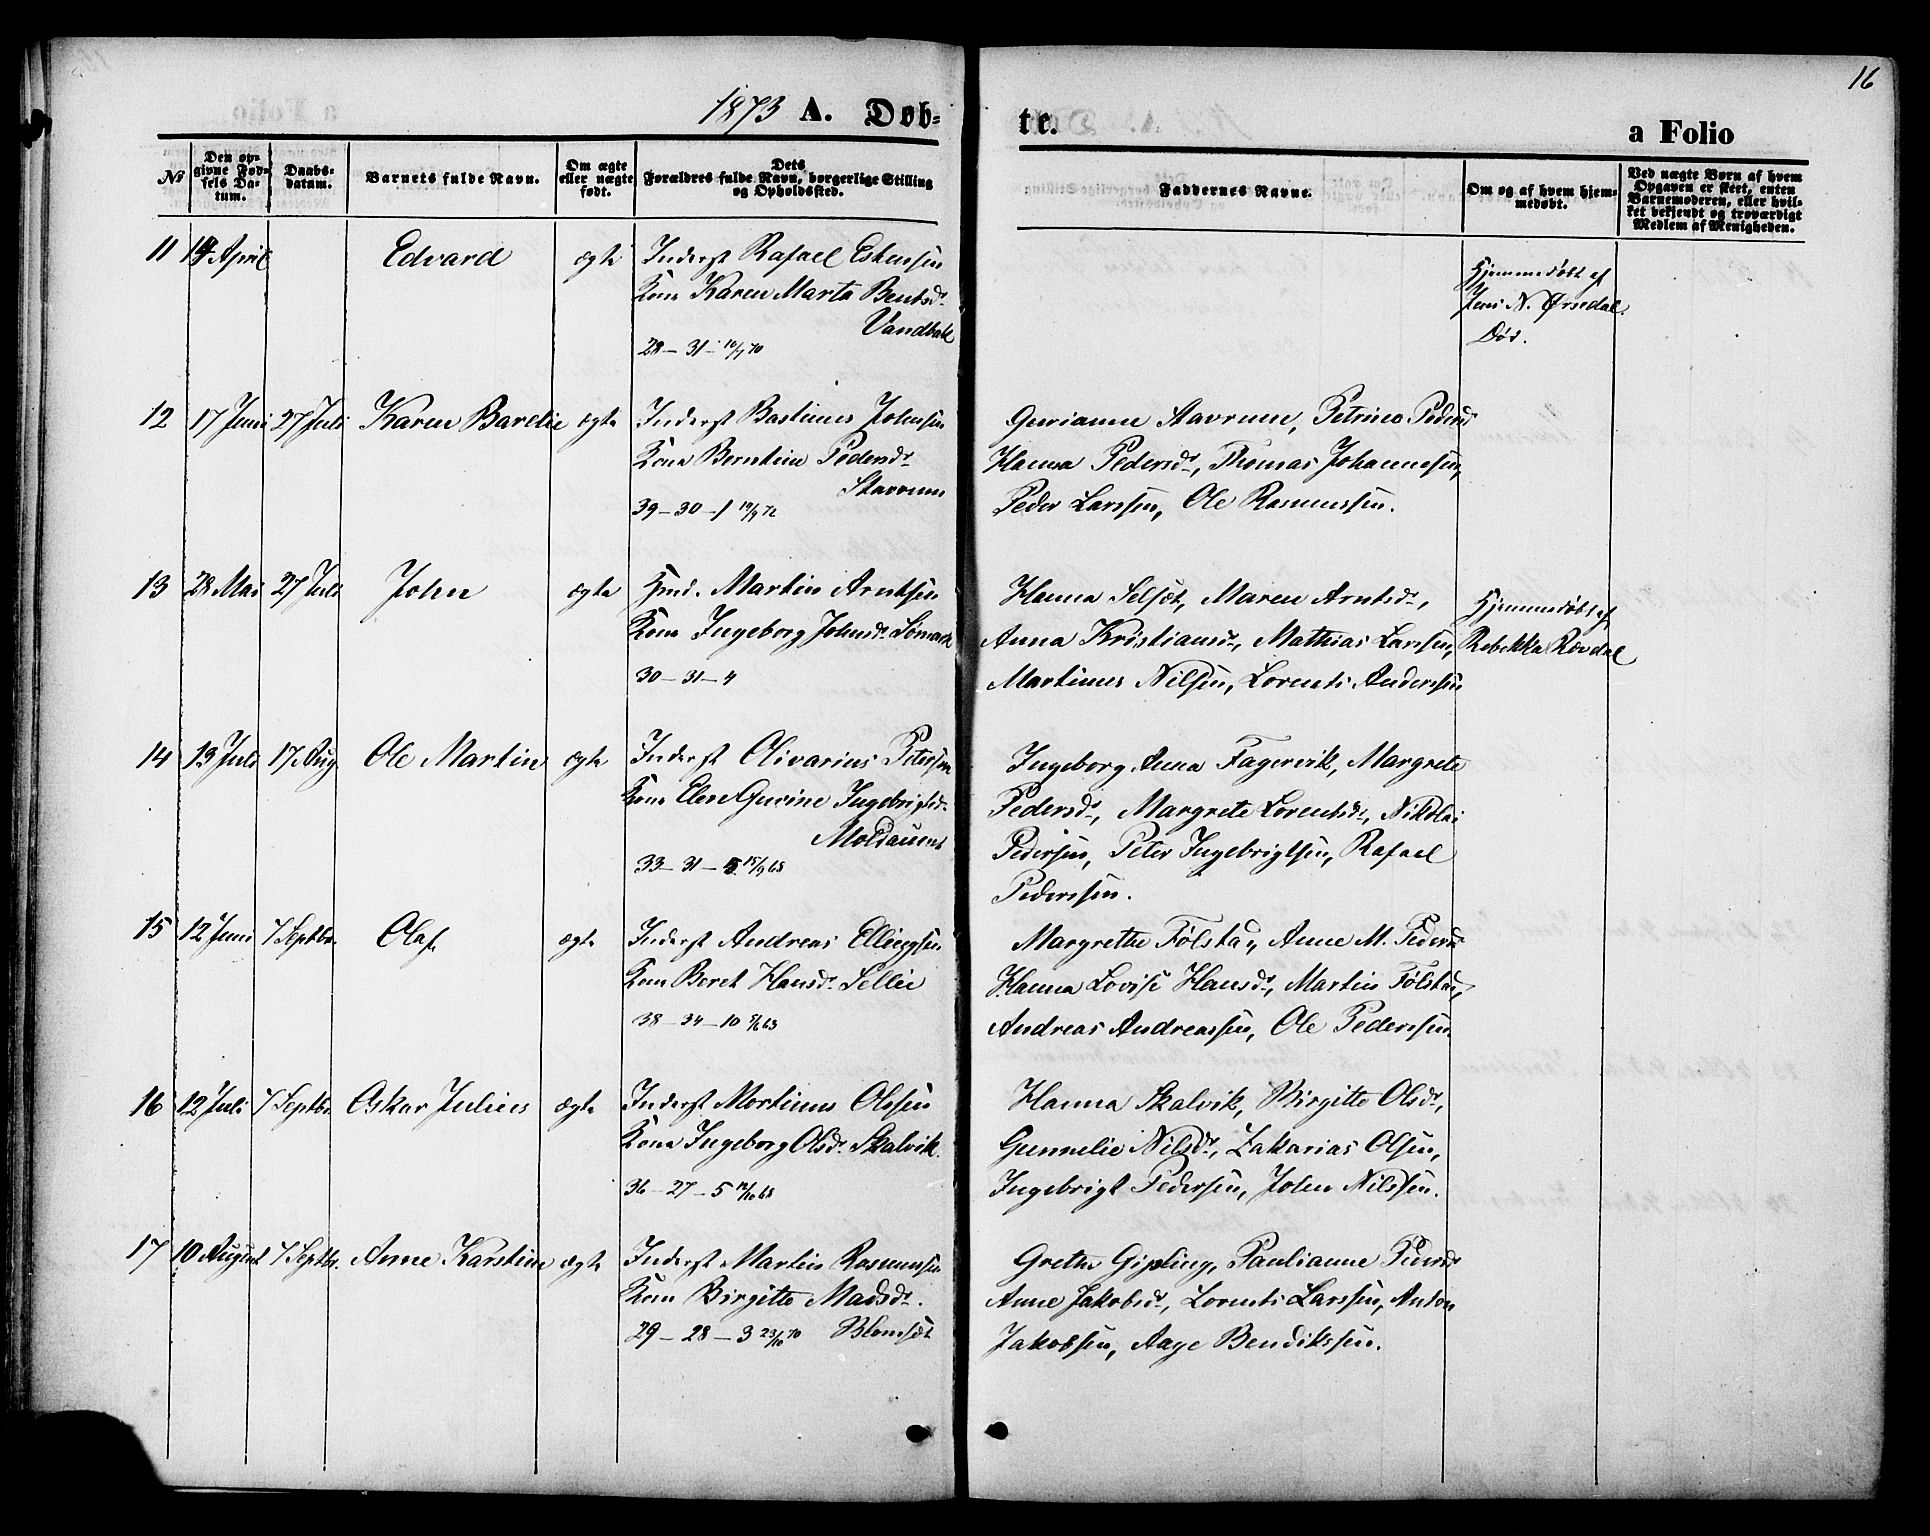 16
1873 A. Døb-
te.
a Folio
№
Den op-
givne Fød-
sels Da-
tum.
Daabs-
datum.
Barnets fulde Navn.
Om ægte
eller uægte
født.
Dets
Forældres fulde Navn, borgerlige Stilling
og Opholdssted.
Faddernes Navne.
Om og af hvem hjem-
medøbt.
Ved uægte Børn af hvem
Opgaven er skeet, enten
Barnemoderen, eller hvil-
ket bekjendt og troværdigt
Medlem af Menigheden.
11 April Edvard ægte Inderst Rafael Eskensen
Kone Karen Marta Bentsdr.
Vandbak
28 – 31 –
Hjemmedøbt af
Jens N. Ørsedal.
Død.
12 17 Juni 27 Juli Karen Barelie ægte Inderst Bastinus Johnsen
Kone Berntine Pedersdr.
Skavrum
39 – 30 – 1
Gurianne Aavrum, Petrine Pedersd
Hanna Pedersdr., Thomas Johannesen,
Peder Larssen, Ole Rasmussen.
13 28 Mai 27 Juli John ægte Hmd. Martin Arntsen
Kone Ingeborg Johnsdr.
30 – 31 – 4
Hanna Selset, Maren Arntsdr.,
Anna Kristiansdr., Mathias Larssen,
Martinus Nilsen, Lorents Anderssen
Hjemmedøbt af
Rebekka Rørdal
14 13 Juli 17 Aug. Ole Martin ægte Inderst Olivarius Petersen
Kone Elen Gurine Ingebrigtsdr.
Moldauens
33 – 31 – 5 15/9 68
Ingeborg Anna Fagervik, Margrete
Pedersdr., Margrete Lorentsdr., Nikolai
Pedersen, Peter Ingebrigtsen, Rafael
Pederssen.
15 12 Juni 7 Septbr. Olaf ægte Inderst Andreas Ellingsen
Kone Beret Hansdr. Sellie
38 – 34 – 10
Margrethe Følstad, Anne M. Pedersd
Hanna Lovise Hansdr., Martin Følstad,
Andreas Andreassen, Ole Pederssen.
16 12 Juli 7 Septbr. Oskar Julius ægte Inderst Mortinus Olssen
Kone Ingeborg Olsdr. Skalvik.
36 – 27 – 5
Hanna Skalvik, Birgitte Olsdr.,
Gunnelie Nilsdr., Zakarias Olsen,
Ingebrigt Pedersen, John Nilssen.
17 10 August 7 Septbr. Anne Karstine ægte Inderst Martin Rasmussen
Kone Birgitte Madsdr.
29 – 28 – 3 23/10 70 Blomsæt
Grethe Gipling, Paulianne Pedersd
Anne Jakobsdr., Lorents Larssen, Anton
Jakobsen, Aage Bendikssen.